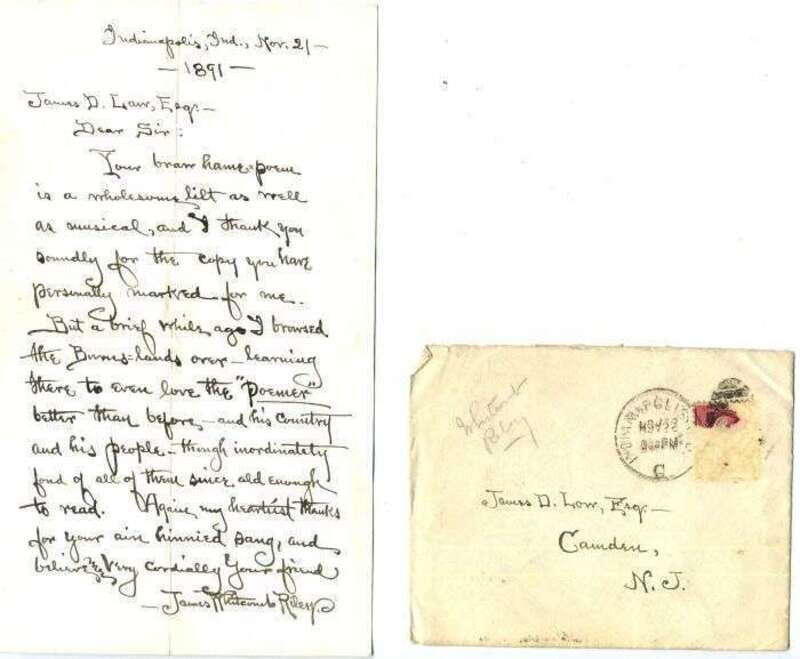 Indianapolis, Ind., Nov. 21 —
— 1891 —
James D. Law, Esq. —
Dear Sir:
Your braw hame=poem
is a wholesome lilt as well
as musical, and I thank you
soundly for the copy you have
personally marked for me.
But a brief while ago I browsed
the Burns=lands over — learning
there to even love the "Poemer"
better than before — and his country
and his people — though inordinately
fond of all of them since old enough
to read. Again my heartiest thanks
for your ain hinnied sang, and
believe me Very cordially Your friend
— James Whitcomb Riley.
Whitcomb
Riley
INDIANAPOLIS
C
James D. Law, Esq. —
Camden,
N. J.